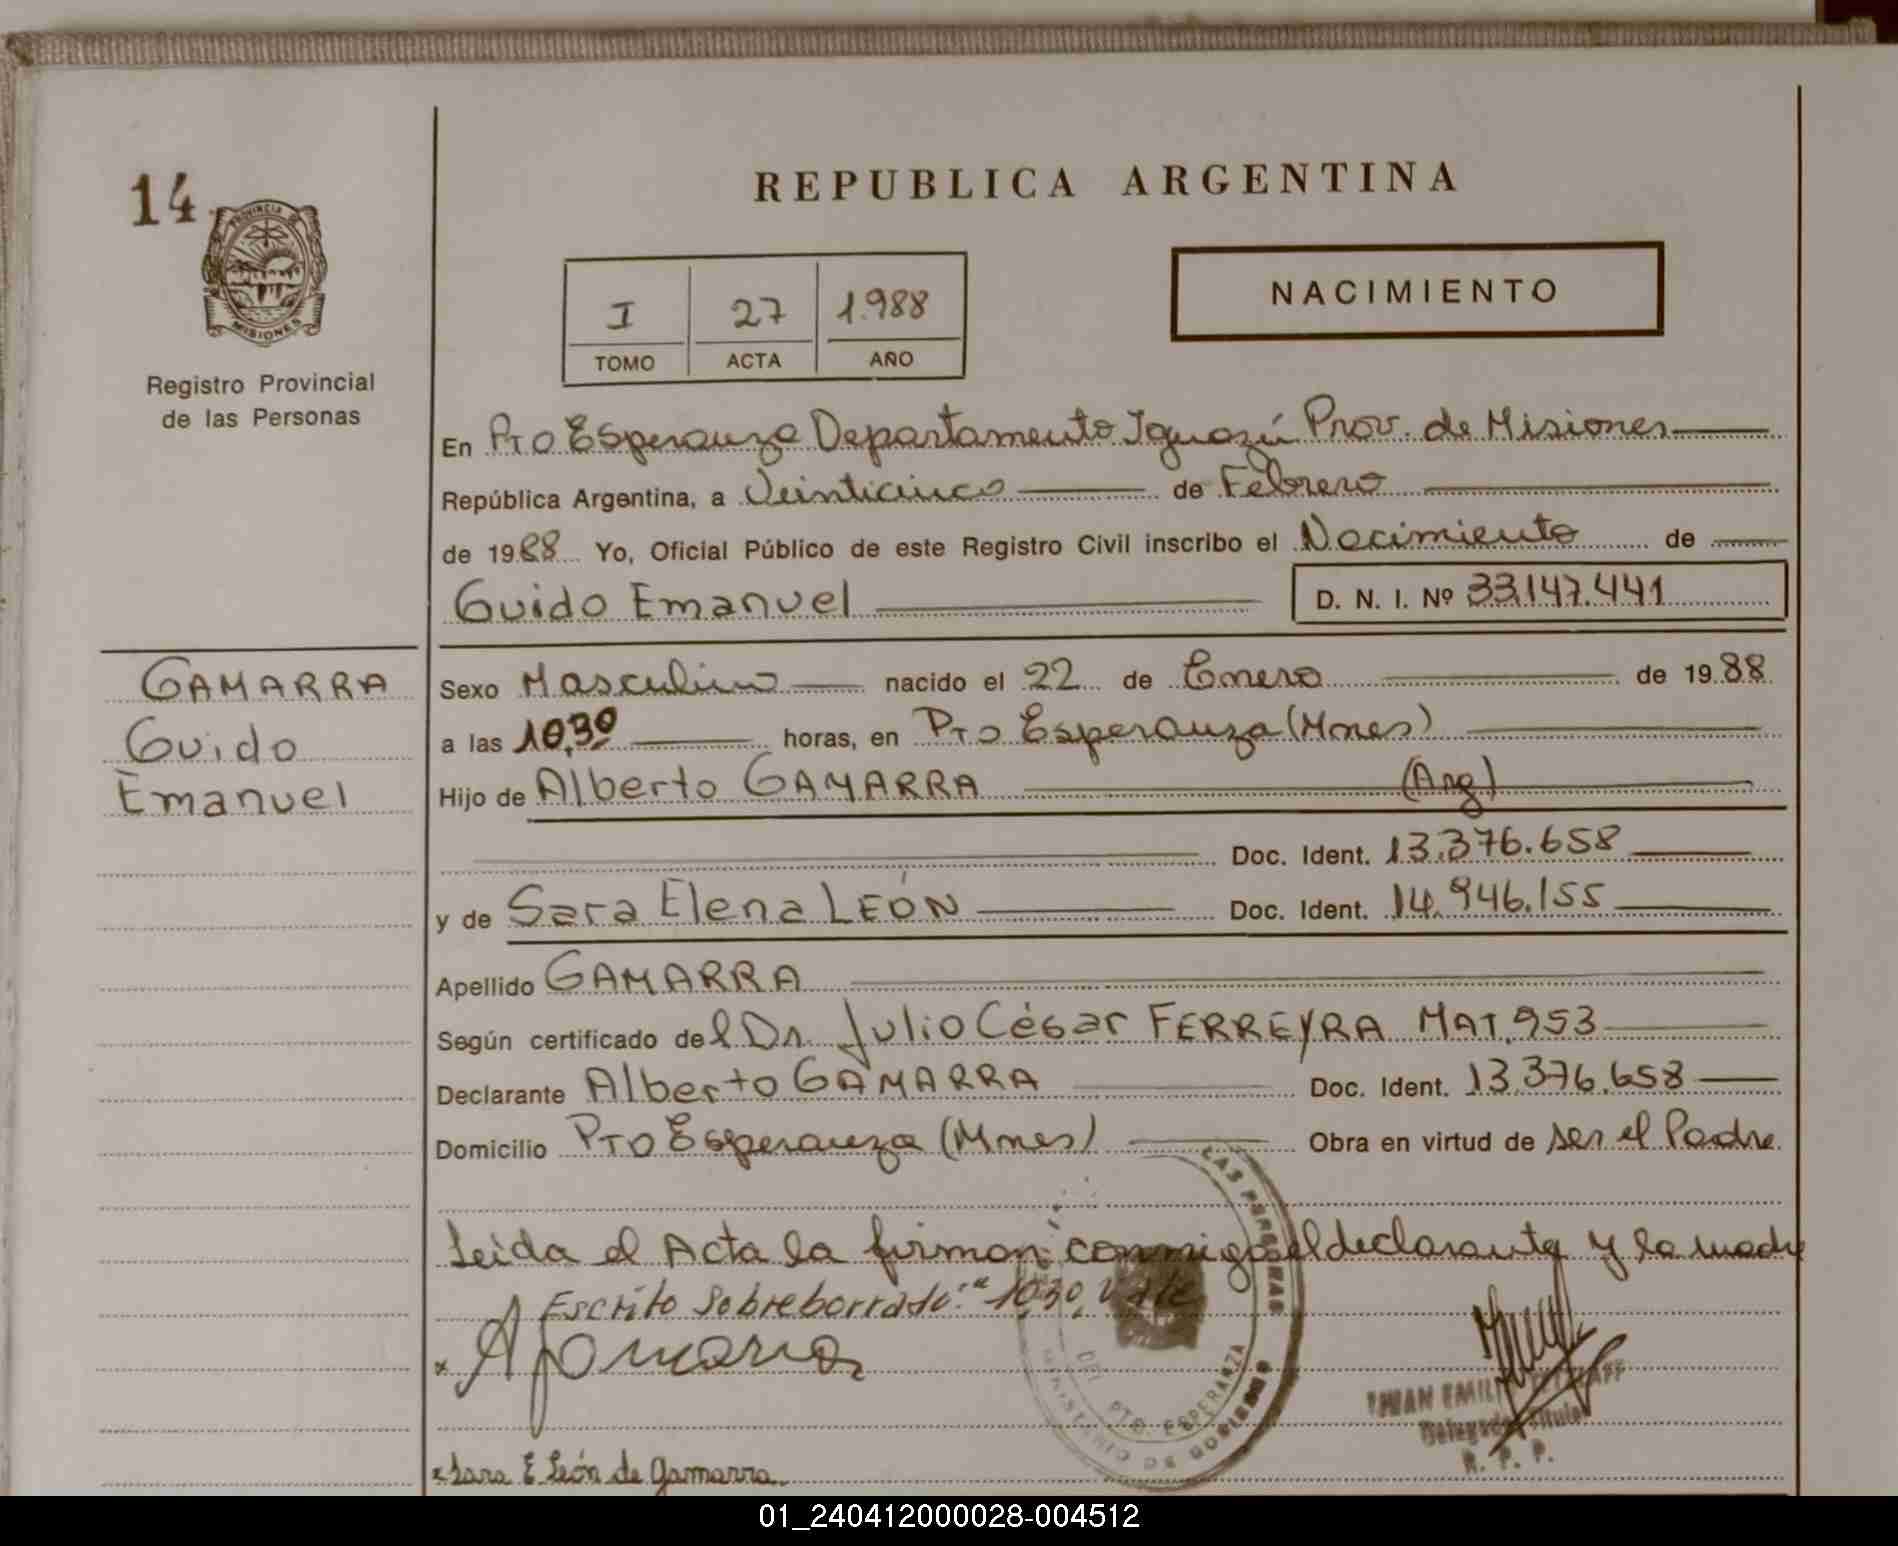 14
PROVINCIA DE
MISIONES
Registro Provincial
de las Personas
REPUBLICA ARGENTINA
I 27 1.988
TOMO ACTA AÑO
NACIMIENTO
En Pto Esperanza Departamento Iguazú Prov. de Misiones
República Argentina, a Veinticinco de Febrero
de 1988 Yo, Oficial Público de este Registro Civil inscribo el Nacimiento de
Guido Emanuel D. N. I. Nº 33.147.441
GAMARRA
Guido
Emanuel
Sexo Masculino nacido el 22 de Enero de 1988
a las 10,30 horas, en Pto Esperanza (Mnes)
Hijo de Alberto GAMARRA (Arg)
Doc. Ident. 13.376.658
y de Sara Elena LEÓN Doc. Ident. 14.946.155
Apellido GAMARRA
Según certificado del Dr. Julio César FERREYRA MAT. 953
Declarante Alberto GAMARRA Doc. Ident. 13.376.658
Domicilio Pto Esperanza (Mnes) Obra en virtud de ser el Padre
Leida el Acta la firman conmigo el declarante y la madre
Escrito Sobreborrado: "1030, Vale
x A Gamarra
LAS PERSONAS
DEL PTO. ESPERANZA
MINISTERIO DE GOBIERNO
JUAN EMILIO
Delegado Titular
R. P. P.
x Sara E León de Gamarra
01_240412000028-004512